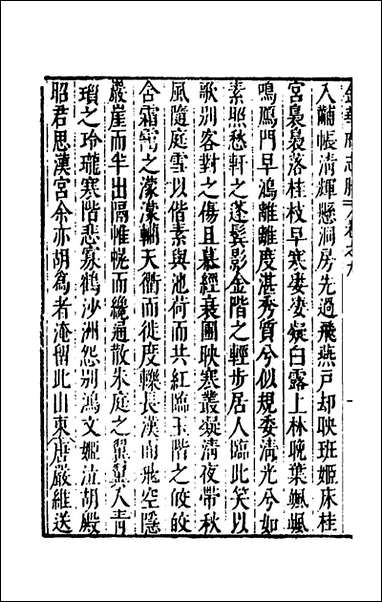 入黼帳清輝懸洞房先過飛燕戶却映班姬床桂
宮裊裊落桂枝早寒凄凄凝白露上林晚葉颯颯
鳴鴈門早鴻離離度湛秀質兮似規委清光兮如
素照愁軒之蓬鬂影金階之輕步居人臨此笑以
歌別客對之傷且慕經衰圃映寒叢凝清夜帶秋
風隨庭雪以偕素與池荷而共紅臨玉階之皎皎
含霜靄之濛濛轥天衢而徙度轢長漢而飛空隱
巖崖而半出隔帷幌而纔通散朱庭之翼翼入青
瑣之玲瓏寒階悲寡鶴沙洲怨別鴻文姬泣胡殿
昭君思漢宮余亦胡為者淹留此山東唐嚴維送